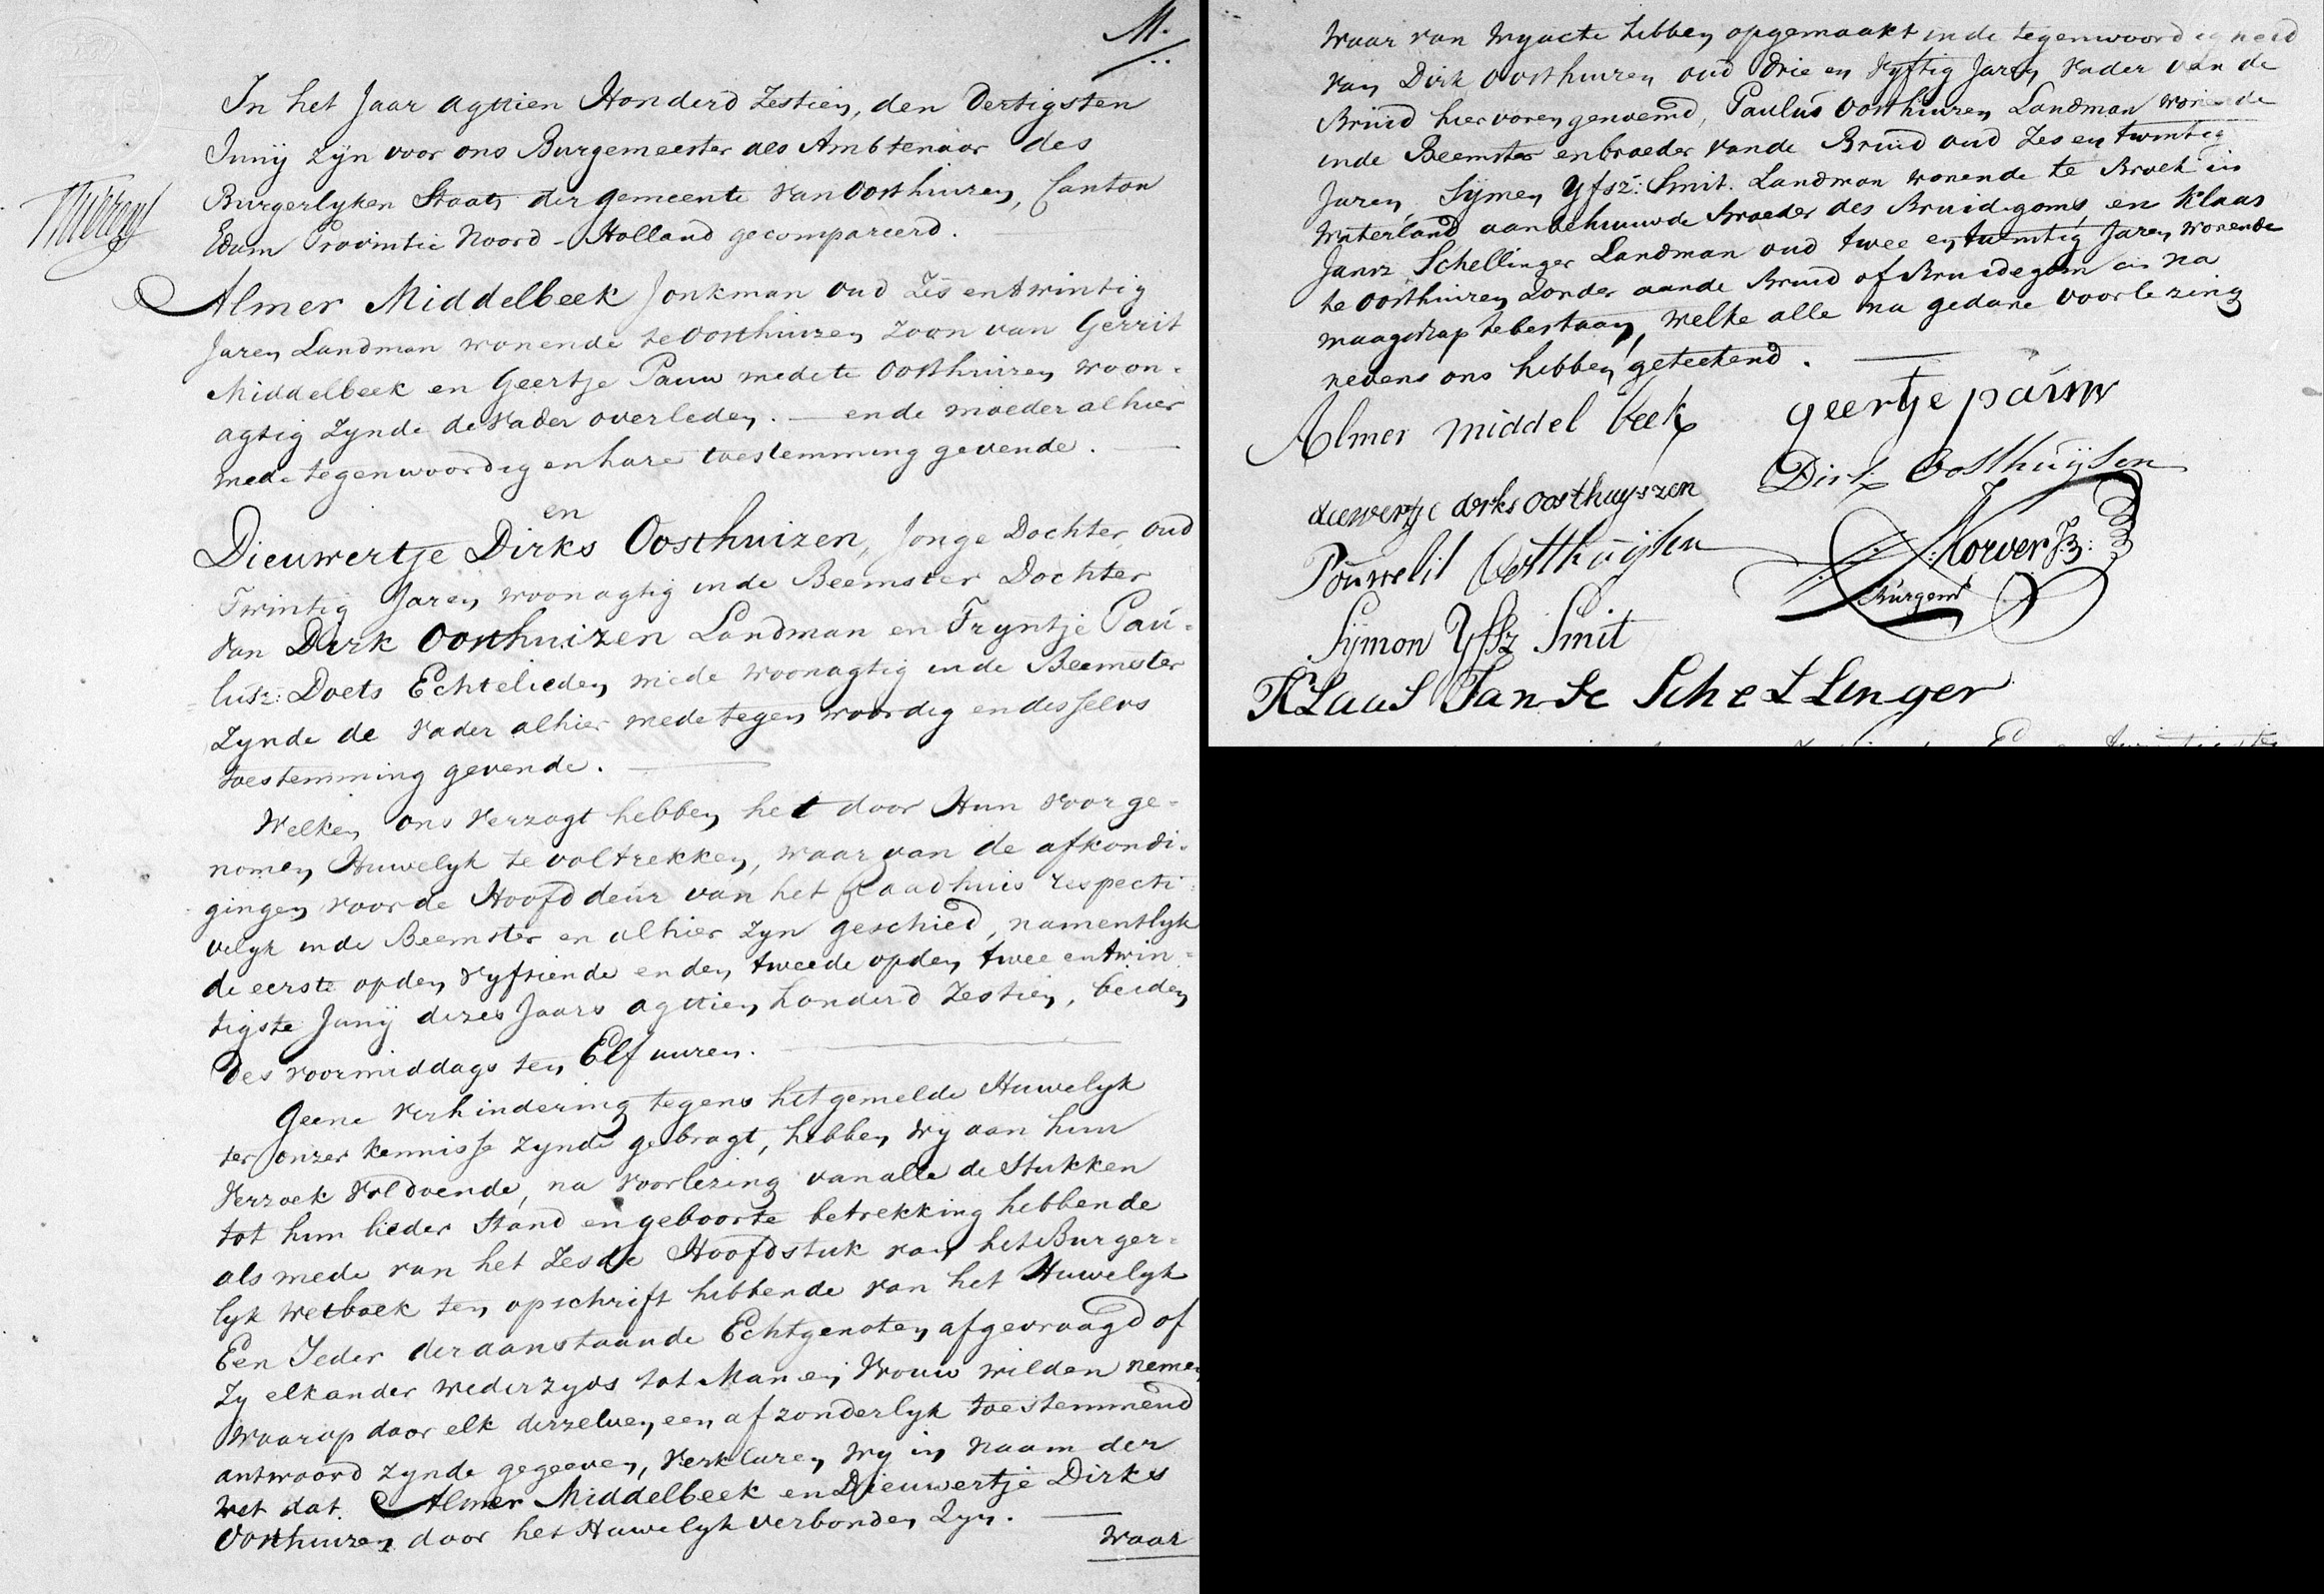 M.
In het Jaar agttien Honderd Zestien, den Dertigsten
Junij zijn voor ons Burgemeester als Ambtenaar des
Burgerlyken Staats der gemeente van Oosthuizen, Canton
Edam Provintie Noord-Holland gecompareerd.
Almer Middelbeek Jonkman oud Zes en twintig
Jaren Landman wonende te Oosthuizen Zoon van Gerrit
Middelbeek en Geertje Pauw mede te Oosthuizen woon-
agtig Zynde de Vader overleden. — en de moeder alhier
mede tegenwoordig en hare toestemming gevende. —
en
Dieuwertje Dirks Oosthuizen, Jonge Dochter oud
Twintig Jaren woonagtig in de Beemster Dochter
van Dirk Oosthuizen Landman en Tryntje Pau-
lusz: Doets Echtelieden mede woonagtig in de Beemster
Zynde de Vader alhier mede tegenwoordig en desselvs
toestemming gevende. —
Welken ons verzogt hebben het door Hun voorge-
nomen Huwelyk te voltrekken, waar van de afkondi-
gingen voor de Hoofd deur van het Raadhuis respecti-
velyk in de Beemster en alhier zyn geschied, namentlyk
de eerste op den vyftiende en den tweede op den twee en twin-
tigste Junij dezes Jaars agttien honderd Zestien, beiden
des voormiddags ten Elf uuren. —
Geene verhindering tegens het gemelde Huwelyk
ter onzer kennisse zynde gebragt, hebben wy aan hun
verzoek voldoende, na voorlezing van alle de Stukken
tot hun lieder Stand en geboorte betrekking hebbende
als mede van het Zesde Hoofdstuk van het Burger-
lyk wetboek ten opschrift hebbende van het Huwelyk
Een Ieder der aanstaande Echtgenoten afgevraagd of
Zy elkander wederzyds tot Man en Vrouw wilden nemen
waarop door elk derzelven een afzonderlyk toestemmend
antwoord zynde gegeeven, verklaren wy in naam der
wet dat. Almer Middelbeek en Dieuwertje Dirks
Oosthuizen door het Huwelyk verbonden Zyn. —
Waar
Waar van wy acte hebben opgemaakt in de tegenwoordigheid
van Dirk Oosthuizen oud drie en vyftig Jaren vader van de
Bruid hier voren genoemd, Paulus Oosthuizen Landman wonende
in de Beemster en broeder van de Bruid oud Zes en twintig
Jaren, Sijmen Yfsz: Smit. Landman wonende te Broek in
Waterland aanbehuuwde Broeder des Bruidegoms, en Klaas
Jansz Schellinger Landman oud twee en twintig Jaren, wonende
te Oosthuizen zonder aan de Bruid of Bruidegom in na
maagschap te bestaan, welke alle na gedane voorlezing
nevens ons hebben geteekend. —
Almer middel beek
geertje pauw
dieuwertje derks oosthuyszen
Dirk Oosthuijsen
Pouwelis Oosthuijsen
Korver Jz:
Burgemr
Sijmon Yfsz Smit
KLaas Janse ScheLLinger